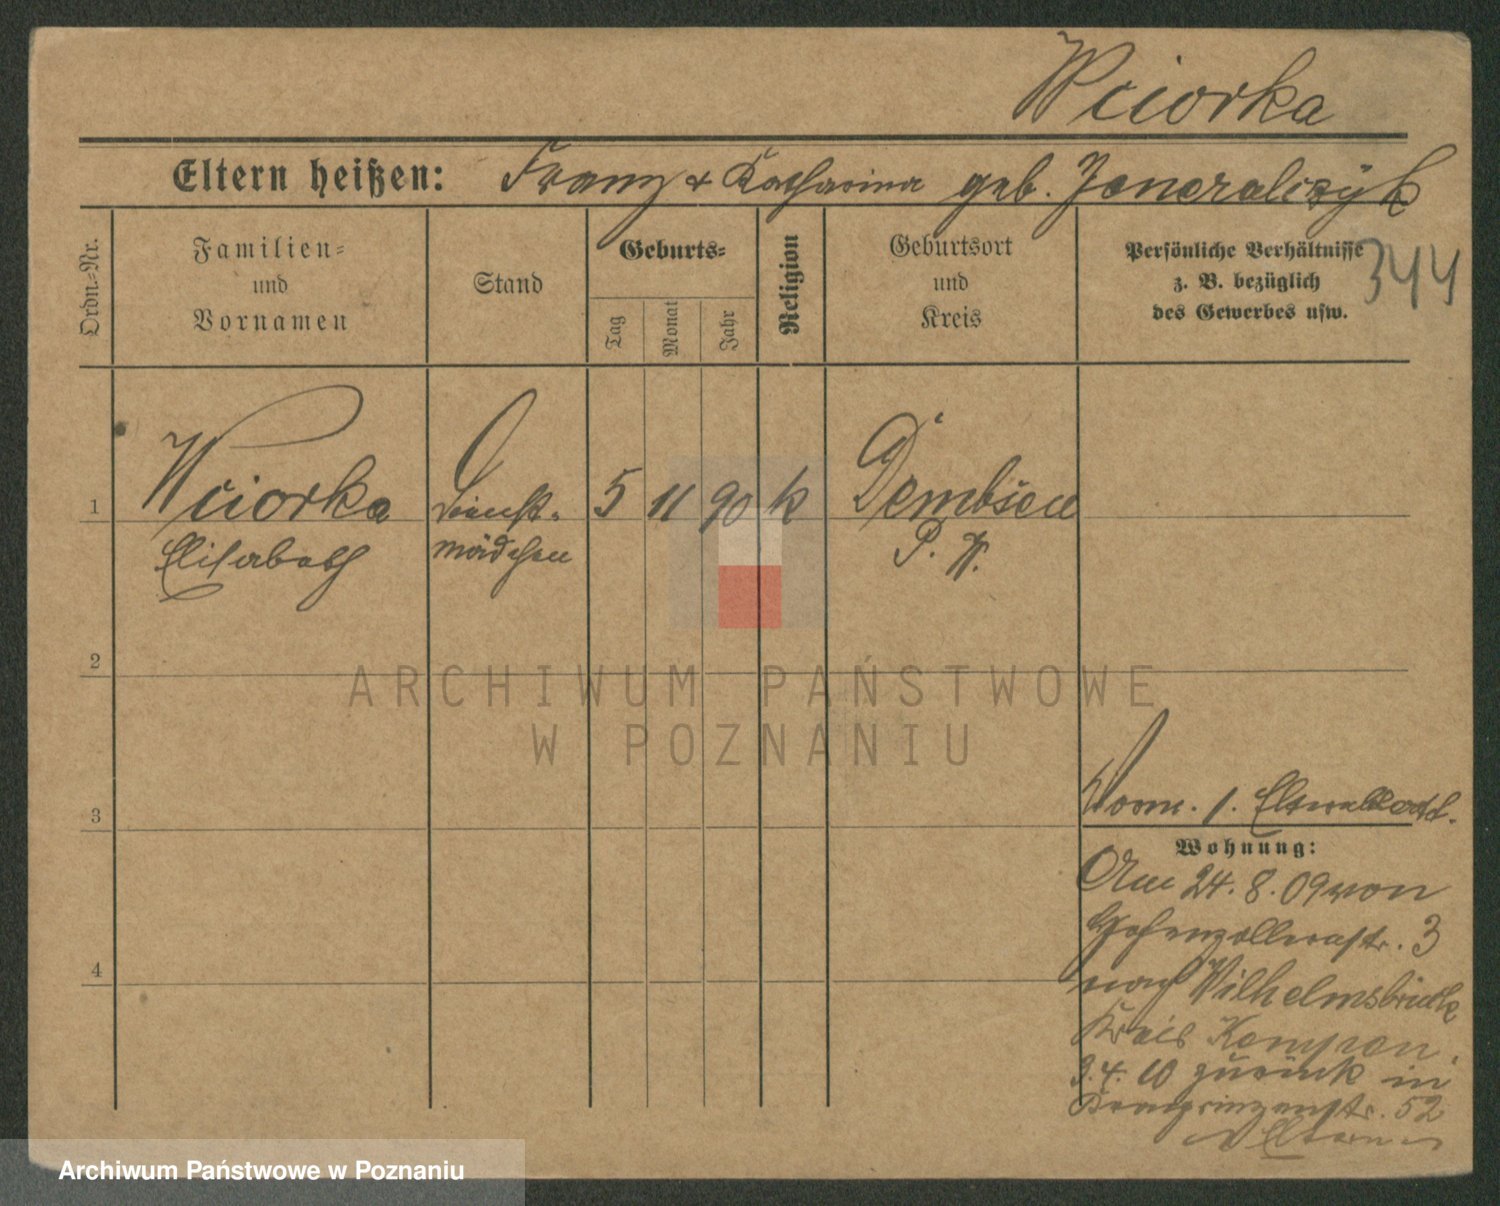 Wciorka
Eltern heißen: Franz + Katharina geb. Jeneralczyk
344
Ordn.-Nr.
Familien-
und
Vornamen
Stand
Geburts-
Tag
Monat
Jahr
Religion
Geburtsort
und
Kreis
Persönliche Verhältnisse
z. B. bezüglich
des Gewerbes usw.
1
Wciorka
Elisabeth
Dienst-
mädchen
5 11 90 k
Dembsen
P. W.
2
3
4
Vorm. 1.
Wohnung:
Am 24. 8. 09 von
Hohenzollernstr. 3
nach Wilhelmsbrück
Kreis Kempen.
3. 4. 10 zurück in
Kronprinzenstr. 52
Eltern
ARCHIWUM PAŃSTWOWE
W POZNANIU
Archiwum Państwowe w Poznaniu